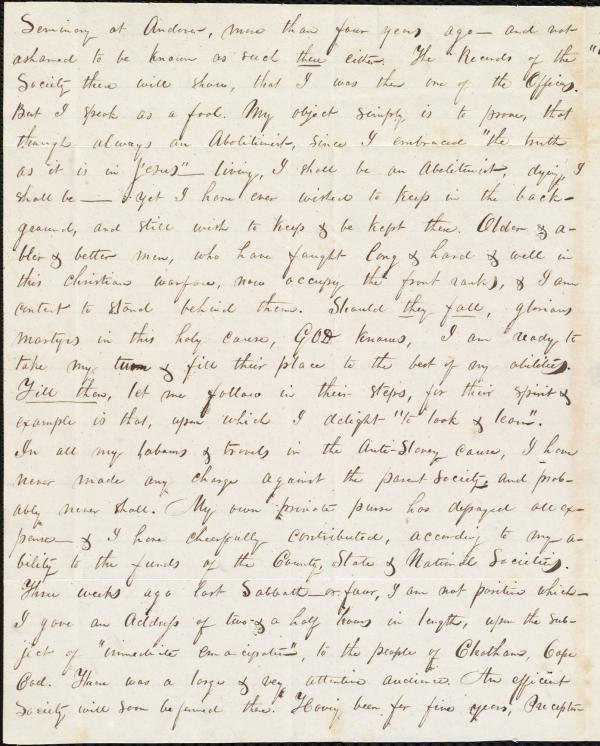 Seminary at Andover, more than four years ago — and not
ashamed to be known as such there either. The Records of the
Society there will show, that I was then one of the Officers.
But I speak as a fool. My object simply is to prove, that
though always an Abolitionist, since I embraced "the truth
as it is in Jesus" — living, I shall be an Abolitionist, dying, I
shall be — & yet I have ever wished to keep in the back-
ground, and still wish to keep & be kept there. Older & a-
bler & better men, who have fought long & hard & well in
this christian warfare, now occupy the front ranks, & I am
content to stand behind them. Should they fall, glorious
martyrs in this holy cause, GOD knows, I am ready to
take my turn & fill their place to the best of my abilities.
Till then, let me follow in their steps, for their spirit &
example is that, upon which I delight "to look & learn".
In all my labours & travels in the Anti-Slavery cause, I have
never made any charge against the parent Society, and prob-
ably never shall. My own private purse has defrayed all ex-
penses — & I have cheerfully contributed, according to my a-
bility to the funds of the County, State & National Societies.
Three weeks ago last Sabbath — or four, I am not positive which —
I gave an Address of two & a half hours in length, upon the sub-
ject of "immediate emancipation", to the people of Chatham, Cape
Cod. There was a large & very attentive audience. An efficient
Society will soon be formed there. Having been for five years, Preceptor